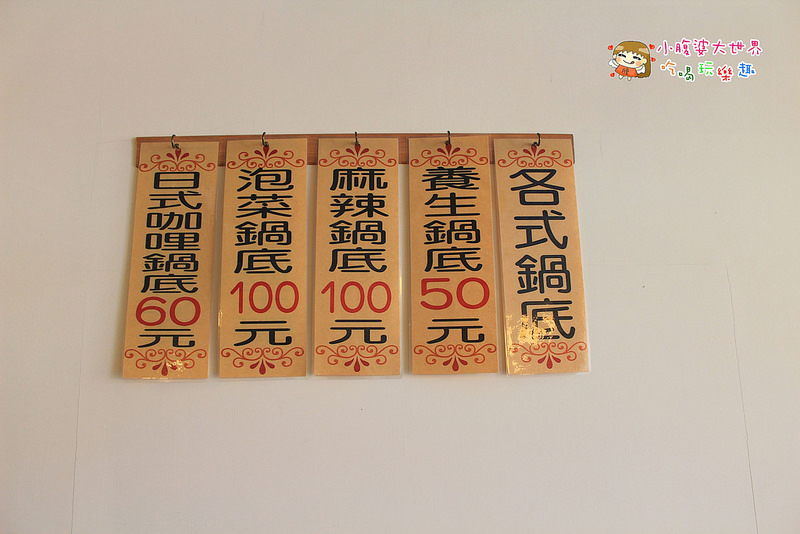 各式鍋底
養生鍋底50元
麻辣鍋底100元
泡菜鍋底100元
日式咖哩鍋底60元
小腹婆大世界
吃喝玩樂趣